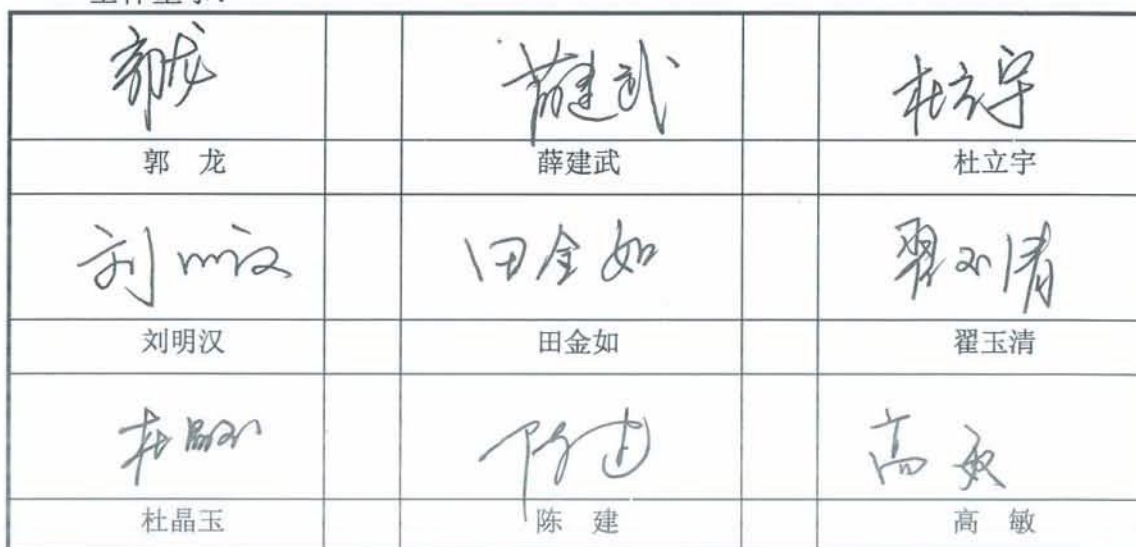 郭龙 薛建武 杜立宇
郭 龙 薛建武 杜立宇
刘明汉 田金如 翟玉清
刘明汉 田金如 翟玉清
杜晶玉 陈建 高敏
杜晶玉 陈 建 高 敏